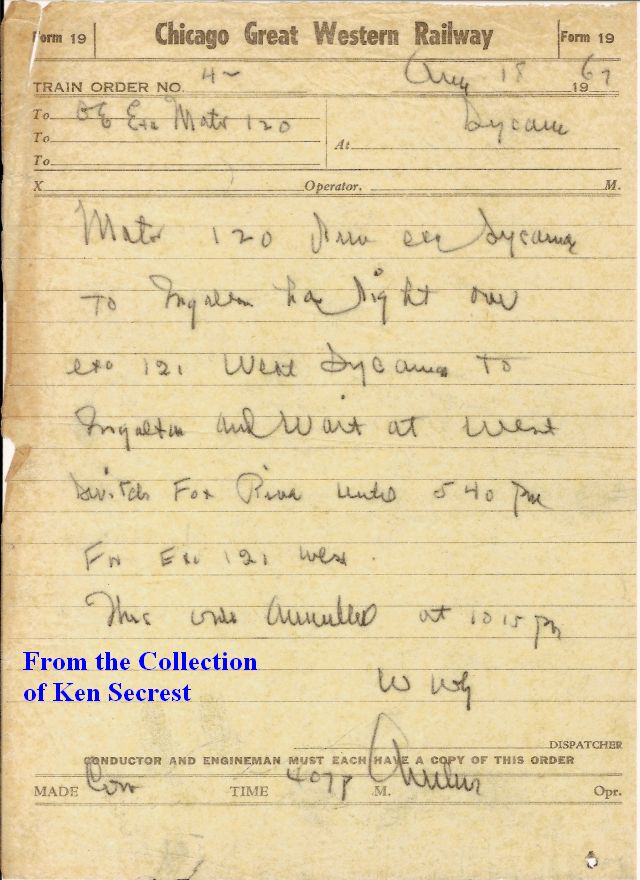 Form 19 Chicago Great Western Railway Form 19
TRAIN ORDER NO. 4 Aug 18 1967
To C&E Exa Motor 120 Sycamore
To At
To
X Operator. M.
Motor 120 Run exa Sycamore
To Ingalton has right over
exa 121 West Sycamore To
Ingalton and Wait at West
Switch Fox River until 5 40 pm
For Exa 121 West.
This order Annulled at 10 15 pm
From the Collection
of Ken Secrest
W
DISPATCHER
CONDUCTOR AND ENGINEMAN MUST EACH HAVE A COPY OF THIS ORDER
MADE Com TIME 407p M. Opr.